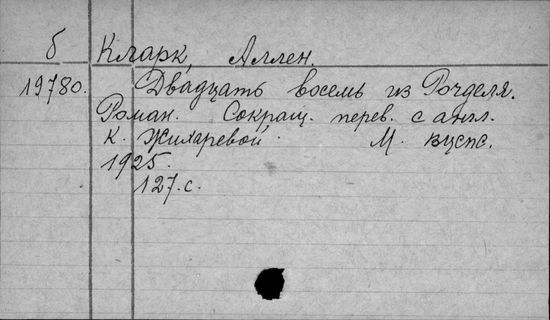 б Кларк, Аллен.
19780. Двадцать восемь из Рочделя.
Роман. Сокращ. перев. с англ.
К. Жихаревой. М. ВЦСПС.
1925.
127. с.